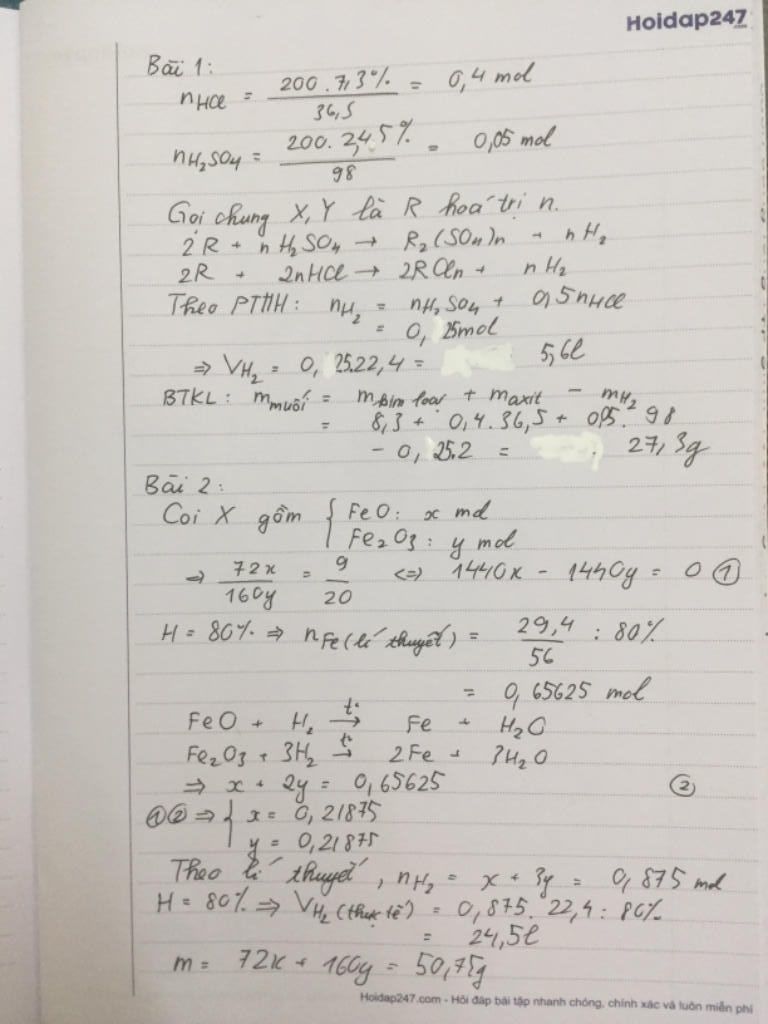 Hoidap247.com
Bài 1:
nHCl = 200.7,3% / 36,5 = 0,4 mol
nH₂SO₄ = 200.2,45% / 98 = 0,05 mol
Gọi chung X, Y là R hoá trị n.
2R + nH₂SO₄ → R₂(SO₄)n + nH₂
2R + 2nHCl → 2RCln + nH₂
Theo PTHH: nH₂ = nH₂SO₄ + 0,5nHCl
= 0,25mol
⇒ VH₂ = 0,25.22,4 = 5,6l
BTKL: mmuối = mkim loại + maxit - mH₂
= 8,3 + 0,4.36,5 + 0,05.98
- 0,25.2 = 27,3g
Bài 2:
Coi X gồm { FeO: x mol
Fe₂O₃: y mol
⇒ 72x / 160y = 9 / 20 ⇔ 1440x - 1440y = 0 ①
H = 80% ⇒ nFe (lí thuyết) = 29,4 / 56 : 80%
= 0,65625 mol
FeO + H₂ →(t°) Fe + H₂O
Fe₂O₃ + 3H₂ →(t°) 2Fe + 3H₂O
⇒ x + 2y = 0,65625 ②
①② ⇒ { x = 0,21875
y = 0,21875
Theo lí thuyết, nH₂ = x + 3y = 0,875 mol
H = 80% ⇒ VH₂ (thực tế) = 0,875.22,4 : 80%
= 24,5l
m = 72x + 160y = 50,75g
Hoidap247.com - Hỏi đáp bài tập nhanh chóng, chính xác và luôn miễn phí